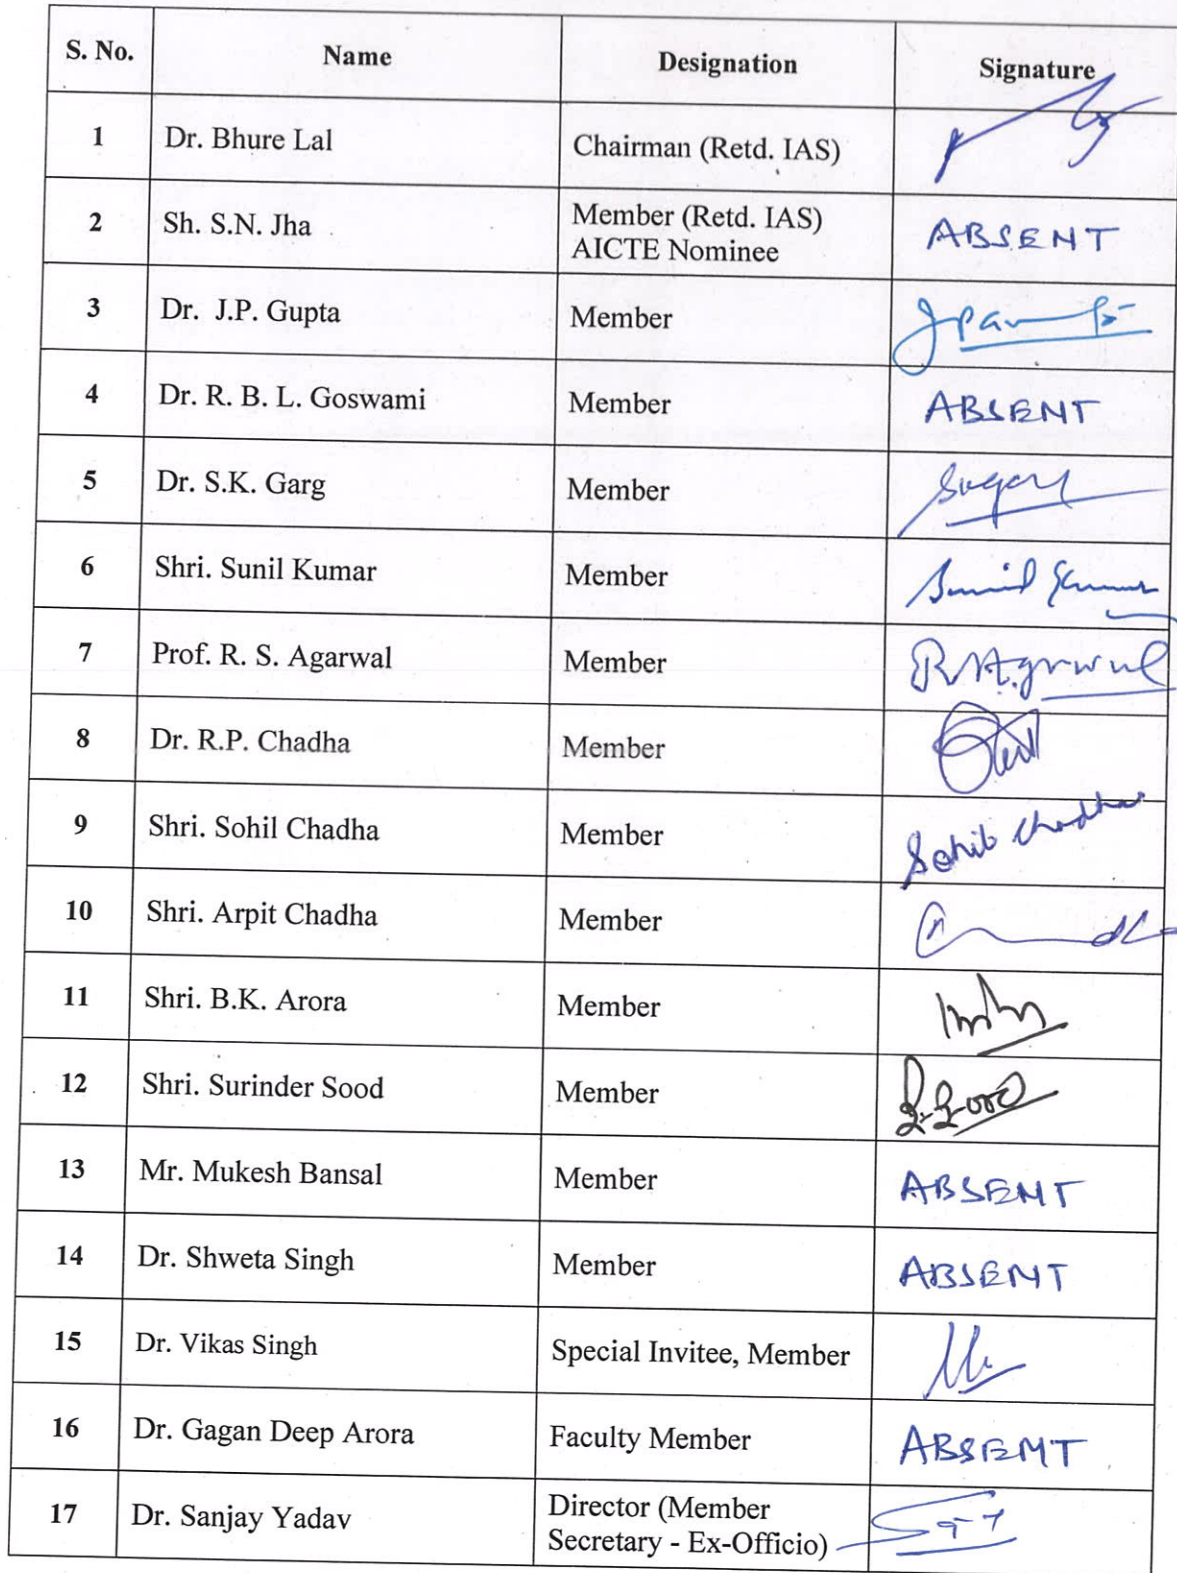 S. No. Name Designation Signature
1 Dr. Bhure Lal Chairman (Retd. IAS)
2 Sh. S.N. Jha Member (Retd. IAS)
AICTE Nominee ABSENT
3 Dr. J.P. Gupta Member
4 Dr. R. B. L. Goswami Member ABSENT
5 Dr. S.K. Garg Member
6 Shri. Sunil Kumar Member Sunil Kumar
7 Prof. R. S. Agarwal Member
8 Dr. R.P. Chadha Member
9 Shri. Sohil Chadha Member Sohil Chadha
10 Shri. Arpit Chadha Member
11 Shri. B.K. Arora Member
12 Shri. Surinder Sood Member S. Sood
13 Mr. Mukesh Bansal Member ABSENT
14 Dr. Shweta Singh Member ABSENT
15 Dr. Vikas Singh Special Invitee, Member
16 Dr. Gagan Deep Arora Faculty Member ABSENT
17 Dr. Sanjay Yadav Director (Member
Secretary - Ex-Officio)